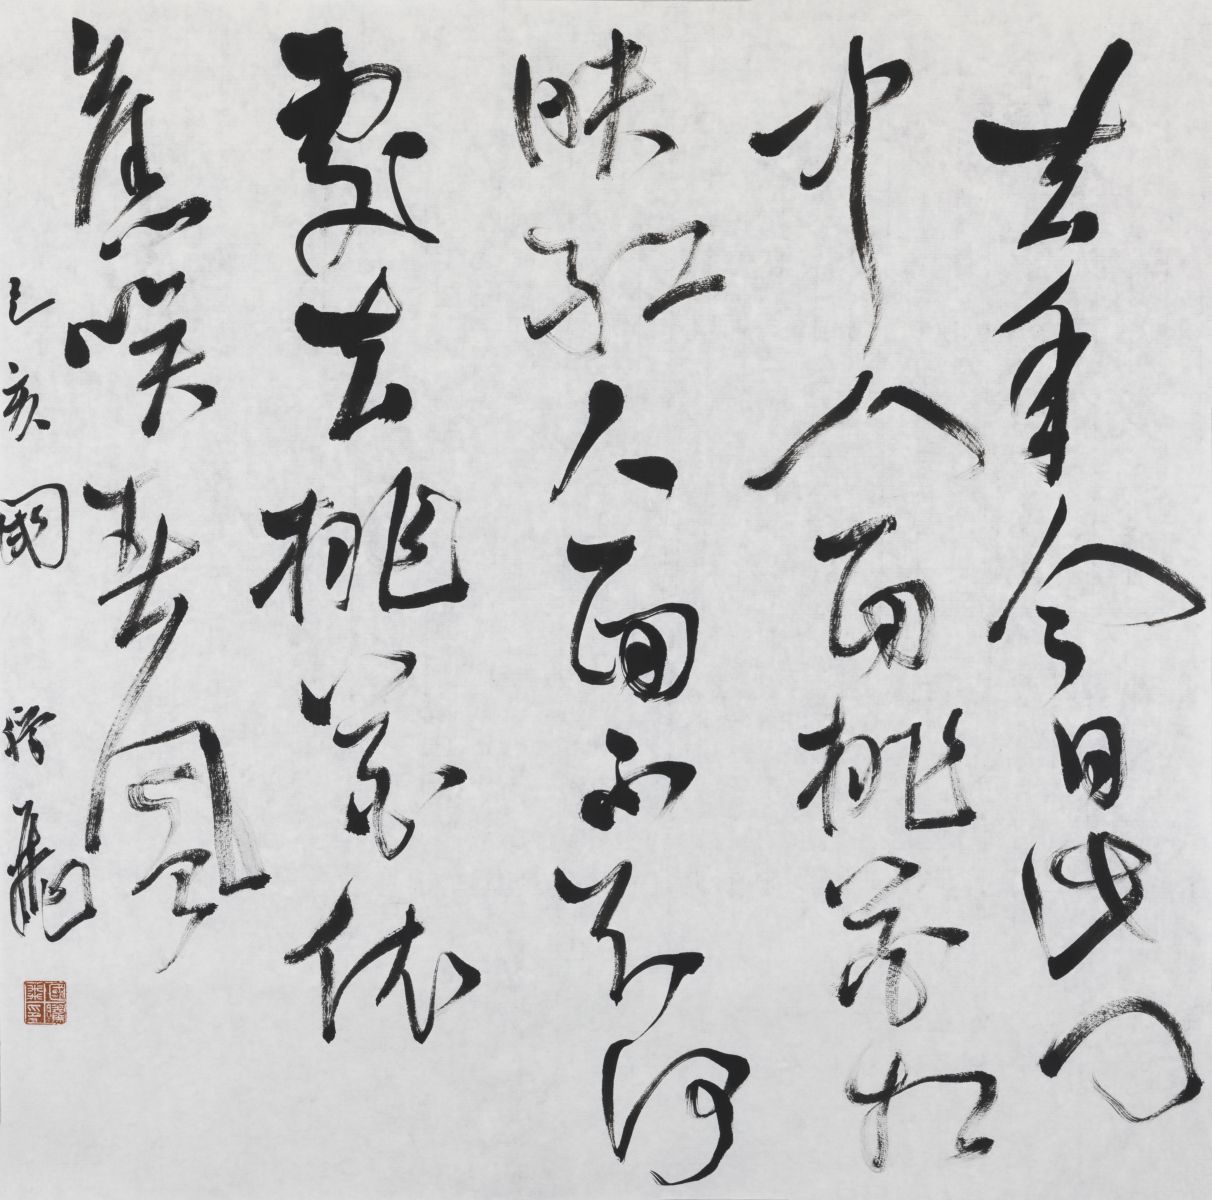 去年今日此門
中人面桃花相
映紅人面不知何
處去桃花依
舊笑春風
己亥國